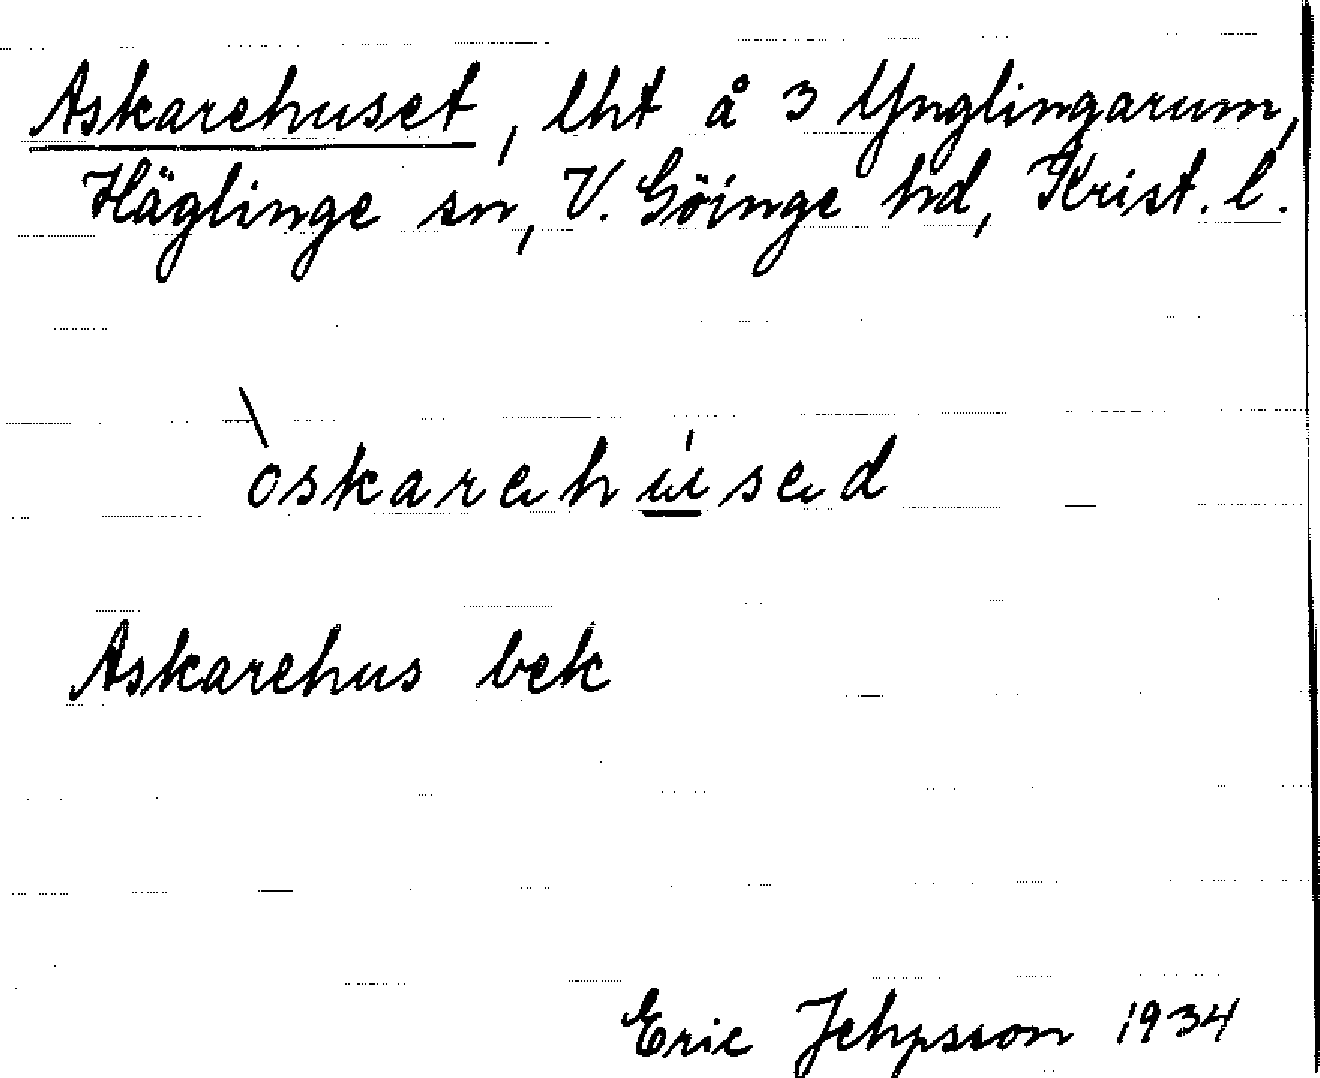 Askarehuset, lht å 3 Ynglingarum,
Häglinge sn, V. Göinge hd, Krist. l.
òskarehúsed
Askarehus bek
Eric Jehpsson 1934